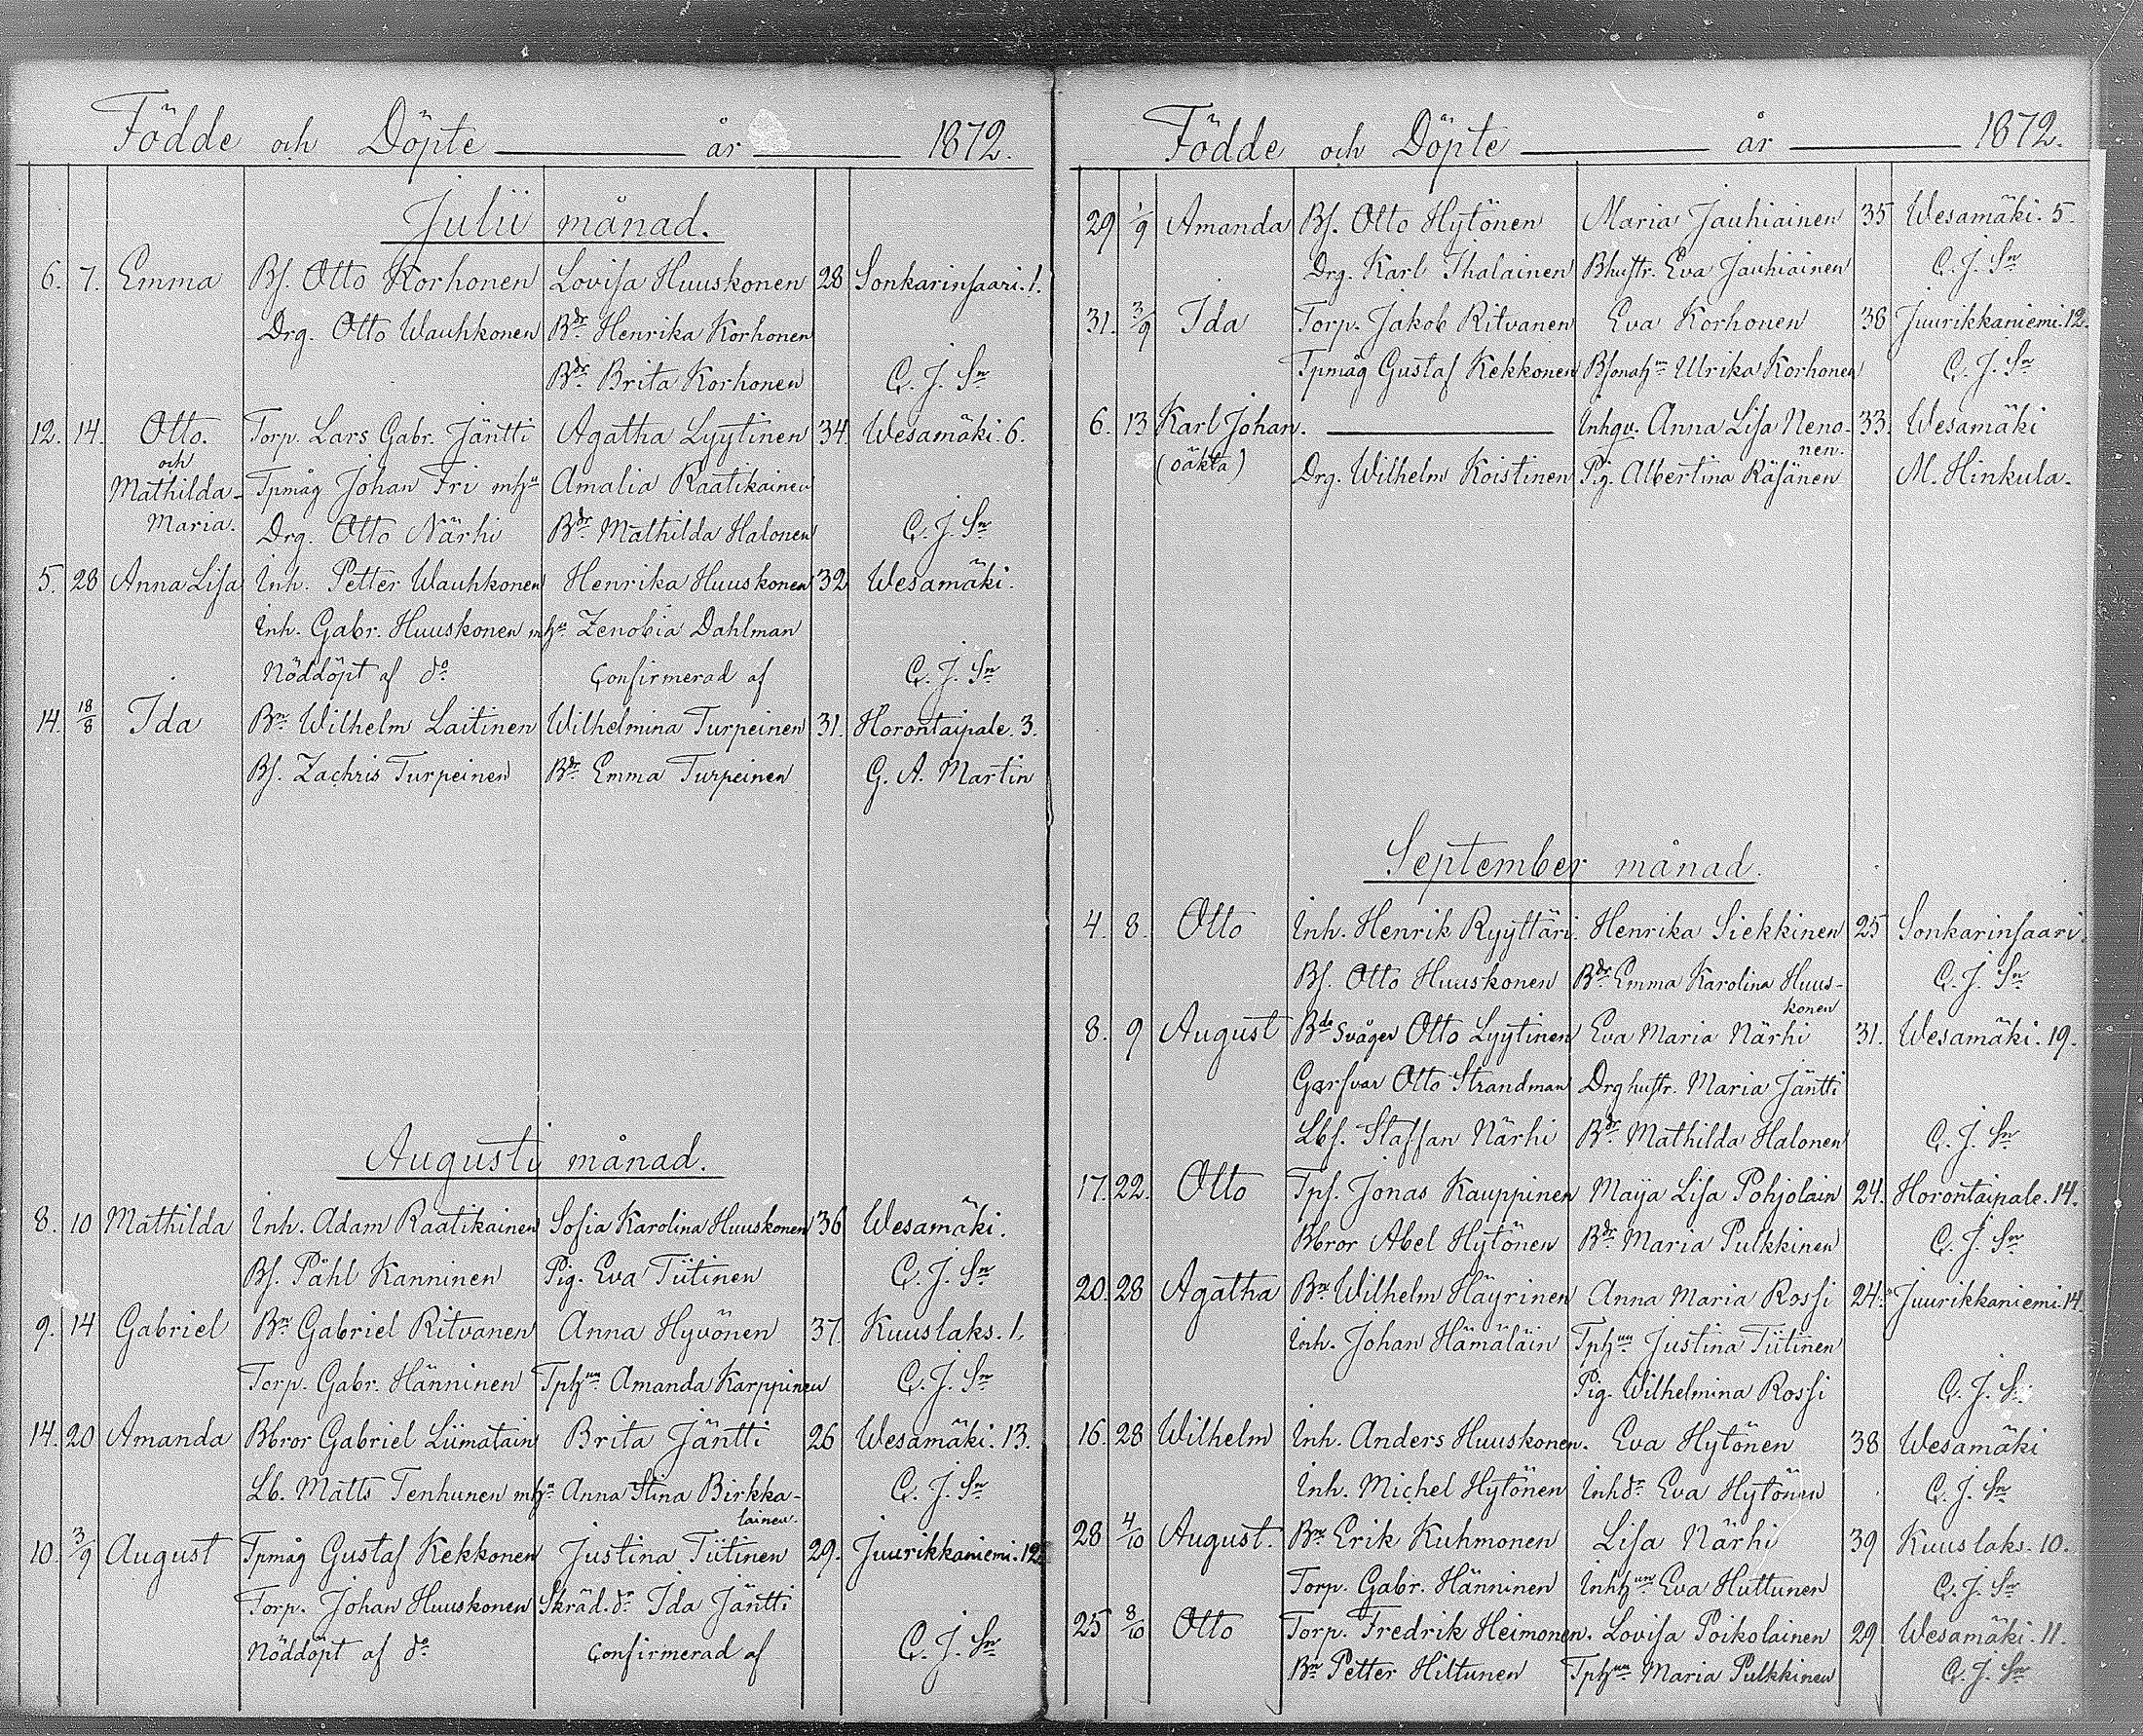 Födde och Döpte år 1872.
Julii månad.
6. 7. Emma Bs. Otto Korhonen Lovisa Huuskonen 28 Sonkarinsaari. 1.
Drg. Otto Wauhkonen Bdr Henrika Korhonen
Bdr Brita Korhonen C. J. Sn
12. 14. Otto. Torp. Lars Gabr. Jäntti Agatha Lyytinen 34. Wesamäki. 6.
och
Mathilda- Tpmåg Johan Fri mhu Amalia Raatikainen
Maria. Drg. Otto Närhi Bdr Mathilda Halonen C. J. Sn
5. 28 Anna Lisa Inh. Petter Wauhkonen Henrika Huuskonen 32 Wesamäki.
Inh. Gabr. Huuskonen mhu Zenobia Dahlman
Nöddöpt af do Confirmerad af C. J. Sn
14. 18/8 Ida Bn Wilhelm Laitinen Wilhelmina Turpeinen 31. Horontaipale. 3.
Bs. Zachris Turpeinen Bdr Emma Turpeinen G. A. Martin
Augusti månad.
8. 10 Mathilda Inh. Adam Raatikainen Sofia Karolina Huuskonen 36 Wesamäki.
Bs. Påhl Kanninen Pig. Eva Tiitinen C. J. Sn
9. 14 Gabriel Bn Gabriel Ritvanen Anna Hyvönen 37. Kuuslaks. 1.
Torp. Gabr. Hänninen Tphun Amanda Karppinen C. J. Sn
14. 20 Amanda Bbror Gabriel Liimatain Brita Jäntti 26 Wesamäki. 13.
Lb. Matts Tenhunen mhu Anna Stina Birkka- C. J. Sn
lainen.
10. 3/9 August Tpmåg Gustaf Kekkonen Justina Tiitinen 29. Juurikkaniemi. 12.
Torp. Johan Huuskonen Skräd.dr Ida Jäntti
Nöddöpt af do Confirmerad af C. J. Sn
Födde och Döpte år 1872.
29 1/9 Amanda Bs. Otto Hytönen Maria Jauhiainen 35 Wesamäki. 5.
Drg. Karl Ihalainen Bhustr. Eva Jauhiainen C. J. Sn
31. 3/9 Ida Torp. Jakob Ritvanen Eva Korhonen 38 Juurikkaniemi. 12.
Tpmåg Gustaf Kekkonen Bsonahun Ulrika Korhonen C. J. Sn
6. 13 Karl Johan. Inhqv. Anna Lisa Neno- 33. Wesamäki
nen.
(oäkta) Drg. Wilhelm Koistinen Pig. Albertina Räsänen M. Hinkula.
September månad.
4. 8. Otto Inh. Henrik Ryyttäri. Henrika Siekkinen 25 Sonkarinsaari.
Bs. Otto Huuskonen Bdr Emma Karolina Huus- C. J. Sn
konen
8. 9 August Bde svåger Otto Lyytinen Eva Maria Närhi 31. Wesamäki. 19.
Garfvar Otto Strandman Drghustr. Maria Jäntti
Lbs. Staffan Närhi Bdr Mathilda Halonen C. J. Sn
17. 22. Otto Tps. Jonas Kauppinen Maija Lisa Pohjolain 24. Horontaipale. 14.
Bbror Abel Hytönen Bdr Maria Pulkkinen C. J. Sn
20. 28 Agatha Bn Wilhelm Häyrinen Anna Maria Rossi 24. Juurikkaniemi. 14.
Inh. Johan Hämäläin Tphun Justina Tiitinen
Pig. Wilhelmina Rossi C. J. Sn
16. 28 Wilhelm Inh. Anders Huuskonen. Eva Hytönen 38 Wesamäki
Inh. Michel Hytönen Inhdr Eva Hytönen C. J. Sn
28 4/10 August. Bn Erik Kuhmonen Lisa Närhi 39 Kuuslaks. 10.
Torp. Gabr. Hänninen Inhhun Eva Huttunen C. J. Sn
25 8/10 Otto Torp. Fredrik Heimonen. Lovisa Poikolainen 29 Wesamäki. 11.
Bn Petter Hiltunen Tphun Maria Pulkkinen C. J. Sn